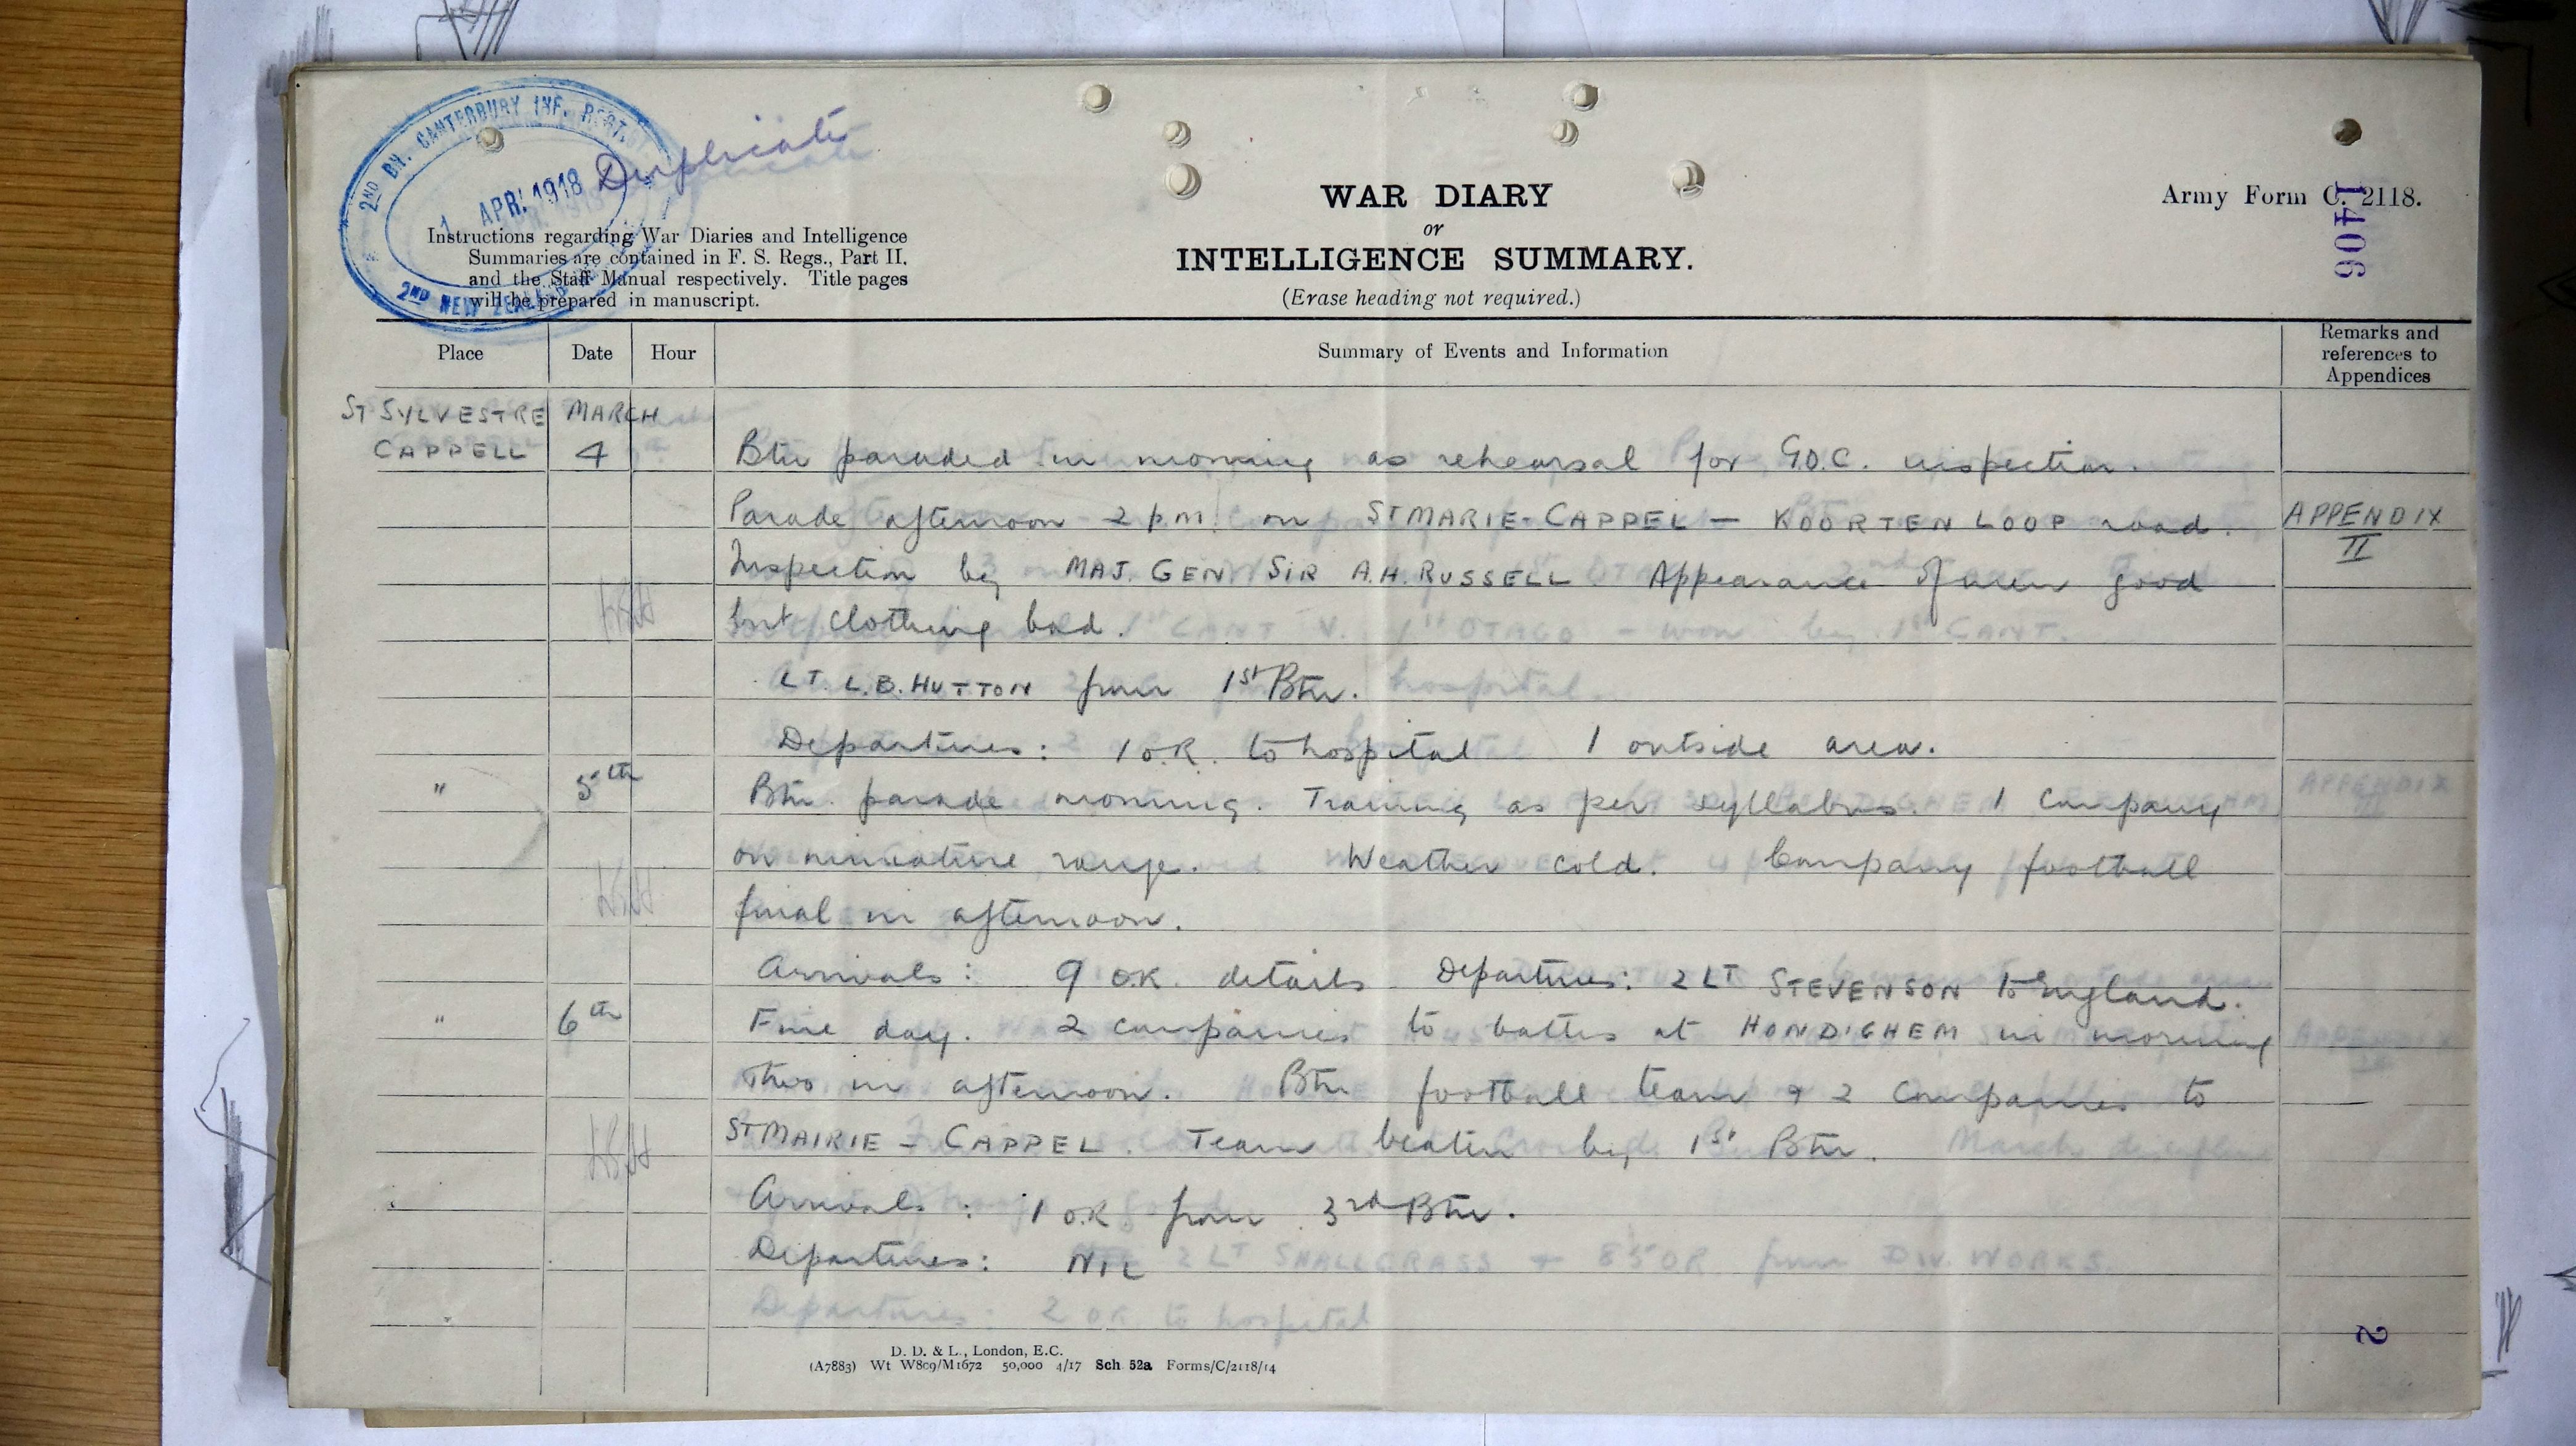 2ND BN. CANTERBURY INF. REGT.
1 APR. 1918
2ND NEW ZEALAND
Duplicate
Instructions regarding War Diaries and Intelligence
Summaries are contained in F. S. Regs., Part II.
and the Staff Manual respectively. Title pages
will be prepared in manuscript.
WAR DIARY
or
INTELLIGENCE SUMMARY.
(Erase heading not required.)
Army Form C. 2118.
1406
Place Date Hour Summary of Events and Information Remarks and
references to
Appendices
ST SYLVESTRE MARCH
CAPPELL 4 Btn paraded in morning as rehearsal for G.O.C. inspection.
Parade afternoon 2 pm. on ST MARIE-CAPPEL — KOORTEN LOOP road. APPENDIX
II
Inspection by MAJ. GEN SIR A.H. RUSSELL Appearance of men good
but clothing bad.
LT. L.B. HUTTON from 1st Btn.
Departures: 1 O.R. to hospital 1 outside area.
" 5th Btn. parade morning. Training as per syllabus. 1 Company
on miniature range. Weather cold. Company football
final in afternoon.
Arrivals: 9 O.R. details Departures: 2 LT STEVENSON to England.
" 6th Fine day. 2 companies to baths at HONDIGHEM in morning
Two in afternoon. Btn football team & 2 Companies to
ST MAIRIE - CAPPEL. Team beaten by 1st Btn.
Arrivals: 1 O.R from 3rd Btn.
Departures: NIL
2
D. D. & L., London, E.C.
(A7883) Wt W809/M1672 50,000 4/17 Sch. 52a Forms/C/2118/14